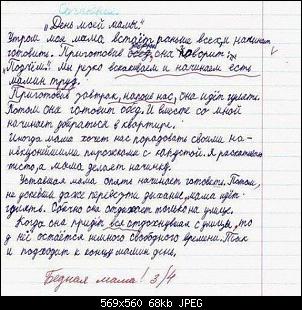 Сочинение.
„День моей мамы"
Утром моя мама встаёт раньше всех и начинает
готовить. Приготовив обед, она говорит: –
"Подъём!" Мы резко вскакиваем и начинаем есть
мамин труд.
Приготовив завтрак, накормив нас, она идёт гулять.
Потом она готовит обед. И вместе со мной
начинает убираться в квартире.
Иногда мама хочет нас порадовать своими на-
ивкуснейшими пирожками с капустой. Я раскатываю
тесто, а мама делает начинку.
Уставшая мама опять начинает готовить. Потом,
не успевая даже перевести дыхание мама идёт
гулять. Обычно она отдыхает только на улице.
Когда она придёт вся отдохнувшая с улицы, то
у неё остаётся немного свободного времени. Так
и подходит к концу мамин день.
Бедная мама! 3/4
569x560 68kb JPEG